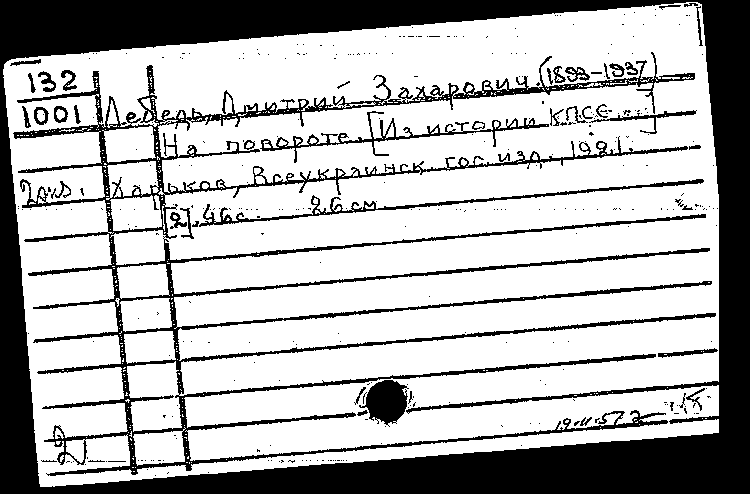 132
1001
Лебедь, Дмитрий Захарович. (1893-1937)
На повороте. [Из истории КПСС...].
2 экз. Харьков, Всеукраинск. гос. изд., 1921.
[2], 46 с. 26 см.
2
19.II.57 г.